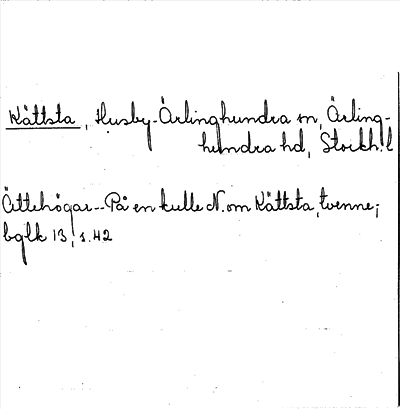 Kättsta, Husby-Ärlinghundra sn, Ärling-
hundra hd, Stockh.l
Ättehögar--På en kulle N. om Kättsta, tvenne;
bglk 13, s. 42